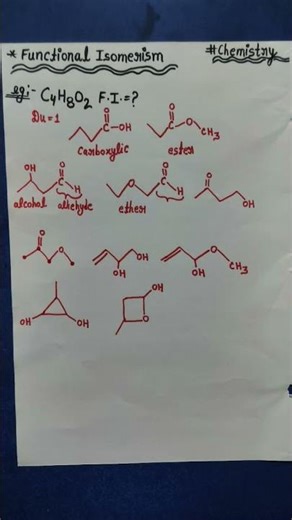 * Functional Isomerism
#Chemistry
eg:- C4H8O2 F.I.=?
Du=1
O
C-OH
Carboxylic
O
C O CH3
ester
OH
O
C H
alcohal aldehyde
O
O
C H
ether
O
OH
O
O
OH
OH
O
OH
CH3
OH
OH
OH
O